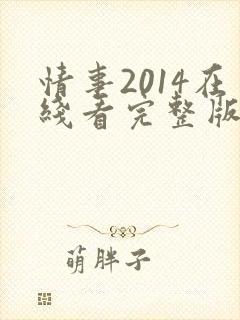 情事2014在
綫看完整版
萌胖子